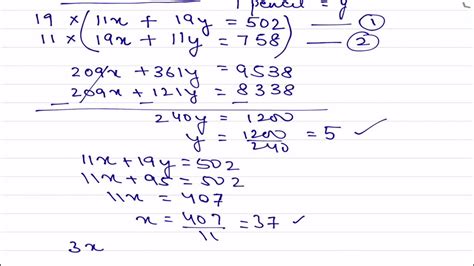 1 pencil = y
19 × (11x + 19y = 502) —— ①
11 × (19x + 11y = 758) —— ②
209x + 361y = 9538
209x + 121y = 8338
240y = 1200
y = 1200/240 = 5 ✓
11x + 19y = 502
11x + 95 = 502
11x = 407
x = 407/11 = 37 ✓
3x